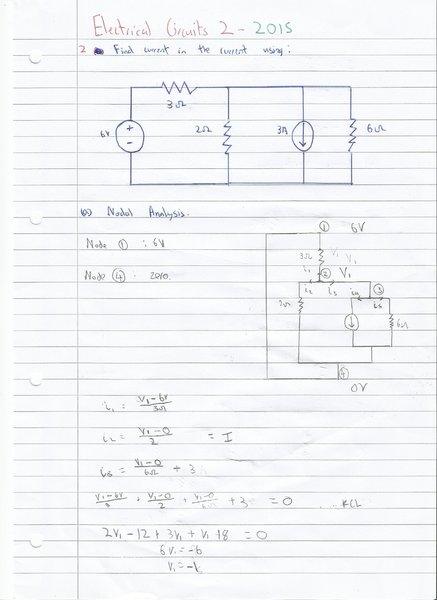 Electrical Circuits 2 - 2015
2 Find current in the current using:
3Ω
6V + - 2Ω 3A 6Ω
(b) Nodal Analysis.
① 6V
Node ① : 6V
3Ω V₁
i₁ ② V₁
Node ④ : zero.
i₂ i₃ i₄ ③
2Ω i₅ 6Ω
④
0V
i₁ = V₁-6V / 3Ω
i₂ = V₁-0 / 2 = I
i₃ = V₁-0 / 6Ω + 3
V₁-6V / 3 + V₁-0 / 2 + V₁-0 / 6Ω + 3 = 0 ... KCL
2V₁ - 12 + 3V₁ + V₁ + 18 = 0
6V₁ = -6
V₁ = -1